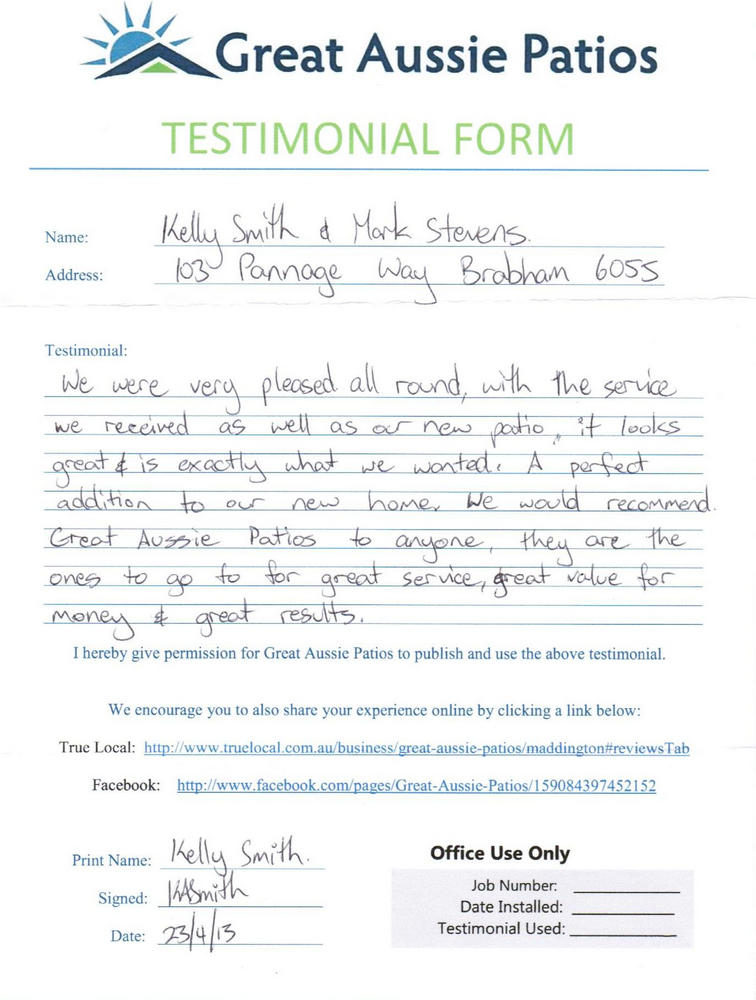 Great Aussie Patios
TESTIMONIAL FORM
Name: Kelly Smith & Mark Stevens.
Address: 103 Pannage Way Brabham 6055
Testimonial:
We were very pleased all round, with the service
we received as well as our new patio, it looks
great & is exactly what we wanted. A perfect
addition to our new home. We would recommend.
Great Aussie Patios to anyone, they are the
ones to go to for great service, great value for
money & great results.
I hereby give permission for Great Aussie Patios to publish and use the above testimonial.
We encourage you to also share your experience online by clicking a link below:
True Local: http://www.truelocal.com.au/business/great-aussie-patios/maddington#reviewsTab
Facebook: http://www.facebook.com/pages/Great-Aussie-Patios/159084397452152
Print Name: Kelly Smith.
Signed: KASmith
Date: 23/4/13
Office Use Only
Job Number:
Date Installed:
Testimonial Used: